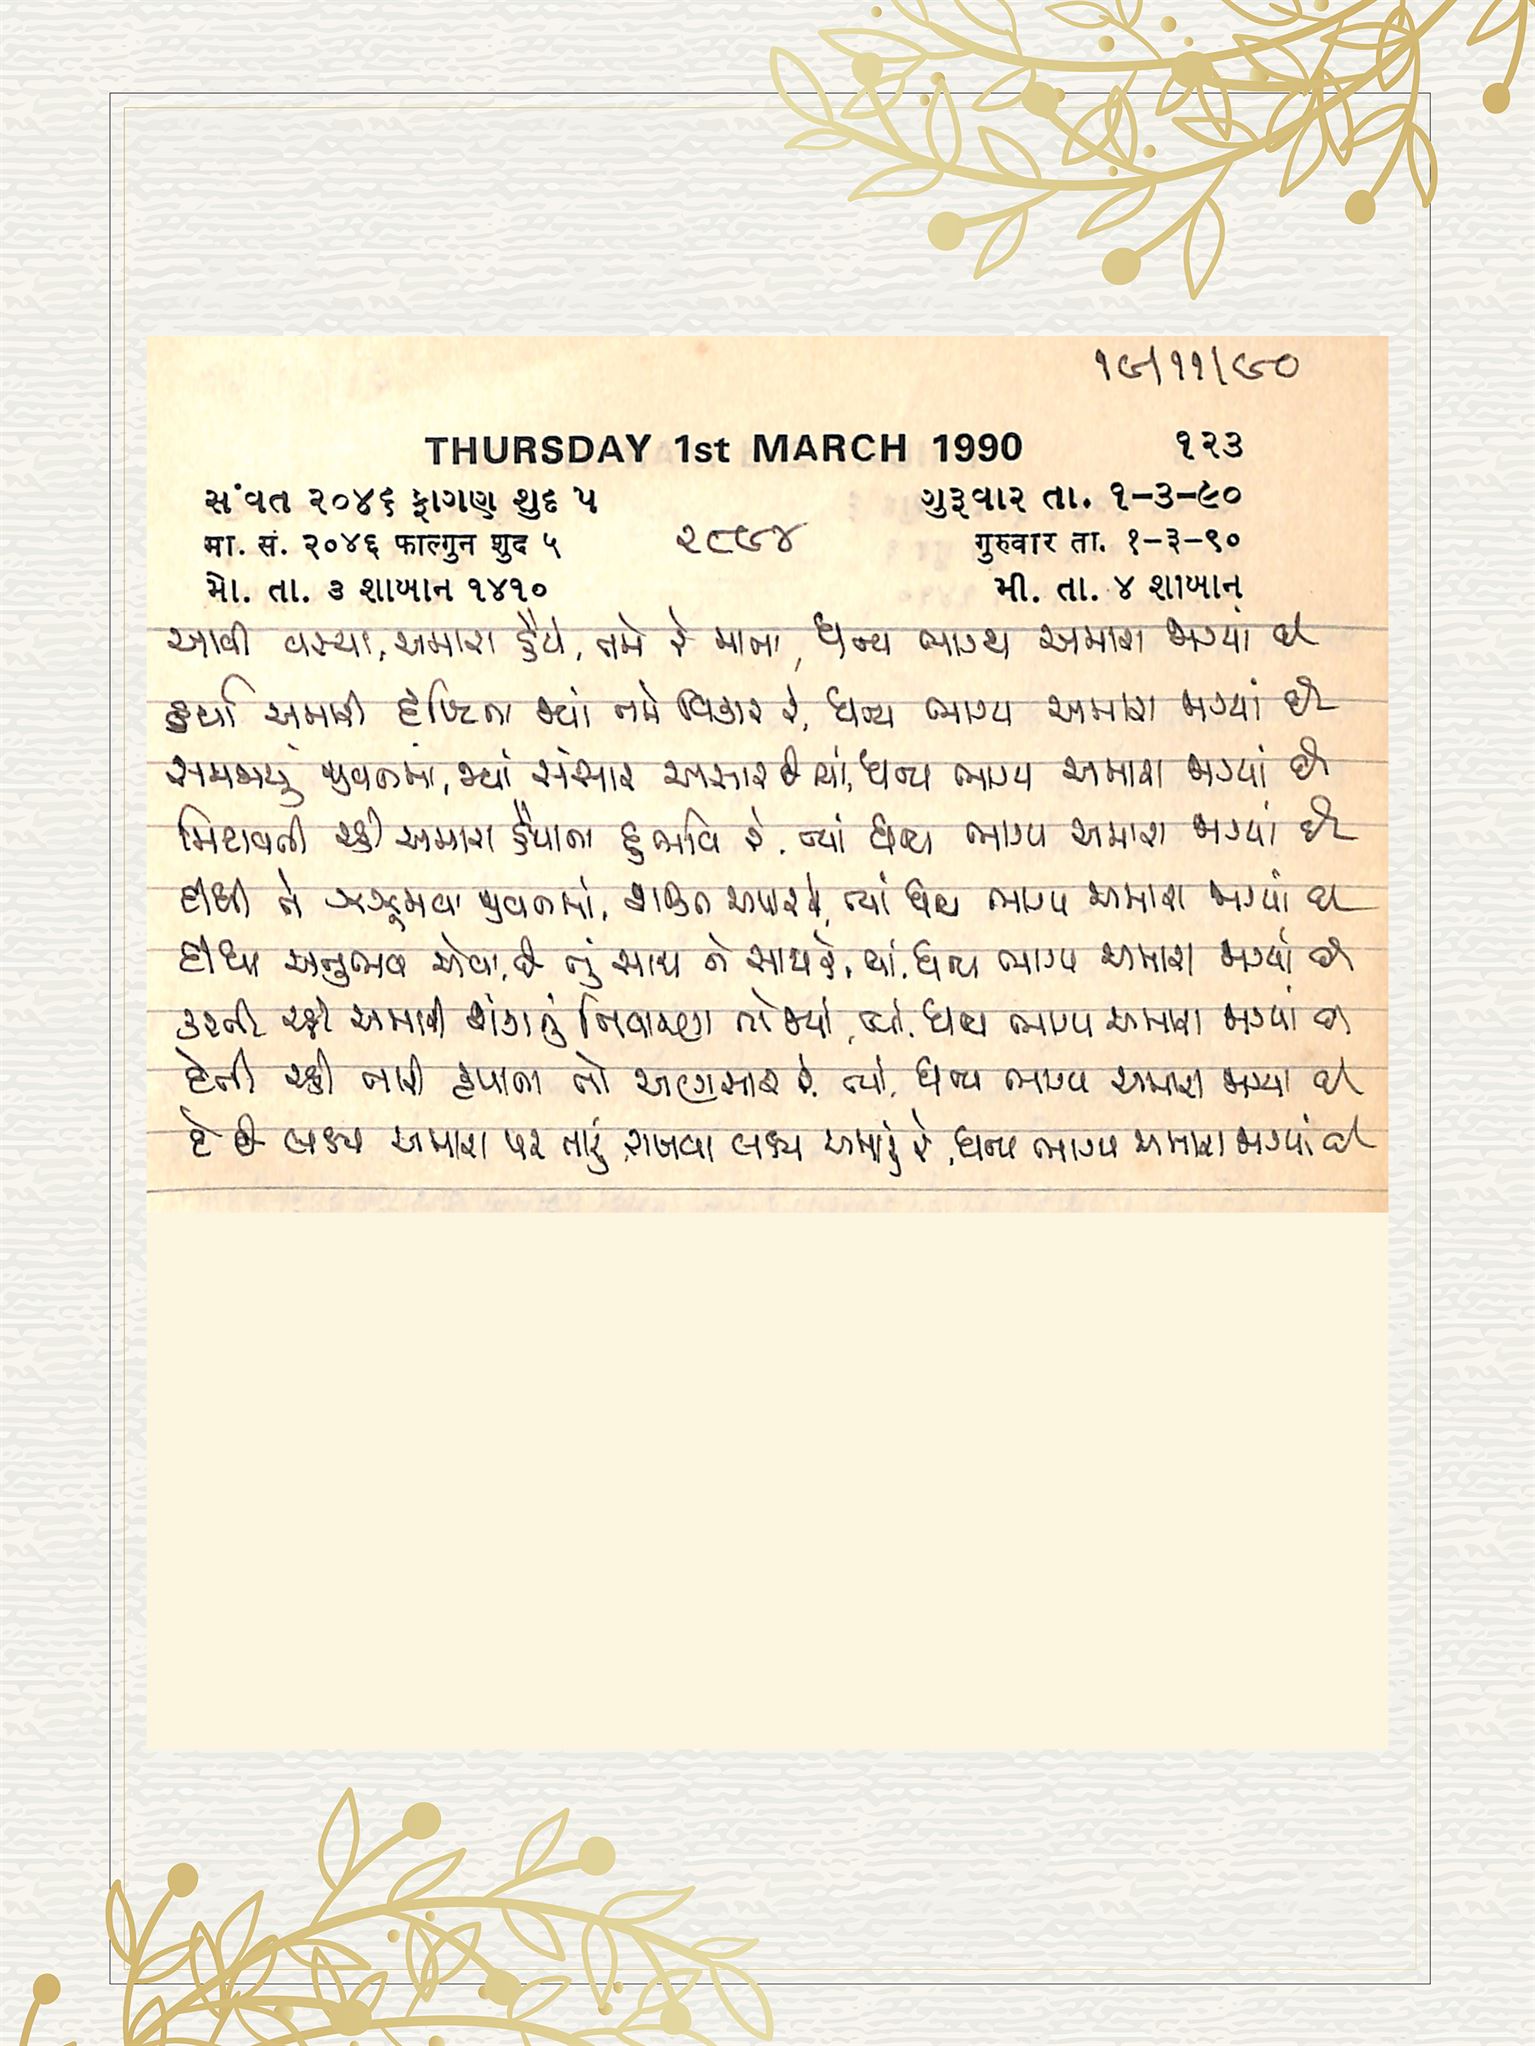 ૧૯/૧૧/૯૦
THURSDAY 1st MARCH 1990 ૧૨૩
સંવત ૨૦૪૬ ફાગણ શુદ ૫ ગુરૂવાર તા. ૧-૩-૯૦
मा. सं. २०४६ फाल्गुन शुद ५ ૨૮૯૪ गुरुवार ता. १-३-९०
મો. તા. ૩ શાબાન ૧૪૧૦ મી. તા. ૪ શાબાન
આવી વસ્યા, અમારા હૈયે, તમે રે માતા, ધન્ય ભાગ્ય અમારા જાગ્યાં છે
હર્યા અમારી દૃષ્ટિના જ્યાં તમે વિકાર રે, ધન્ય ભાગ્ય અમારા જાગ્યાં છે
સમજાયું જીવનમાં, જ્યાં સંસાર અસાર છે ત્યાં, ધન્ય ભાગ્ય અમારા જાગ્યાં છે
મિટાવતી રહી અમારા હૈયાના દુર્ભાવ રે, ત્યાં ધન્ય ભાગ્ય અમારા જાગ્યાં છે
દીધી તેં ઝઝૂમવા જીવનમાં, શક્તિ અપાર રે, ત્યાં ધન્ય ભાગ્ય અમારા જાગ્યાં છે
દીધા અનુભવ એવા, છે તું સાથ ને સાથ રે, ત્યાં, ધન્ય ભાગ્ય અમારા જાગ્યાં છે
કરતી રહી અમારી શંકાનું નિવારણ તો જ્યાં, ત્યાં, ધન્ય ભાગ્ય અમારા જાગ્યાં છે
દેતી રહી તારી કૃપાના તો અણસાર રે, ત્યાં, ધન્ય ભાગ્ય અમારા જાગ્યાં છે
છે લક્ષ્ય અમારા પર તારું, રાખવા લક્ષ્ય અમારું રે, ધન્ય ભાગ્ય અમારા જાગ્યાં છે